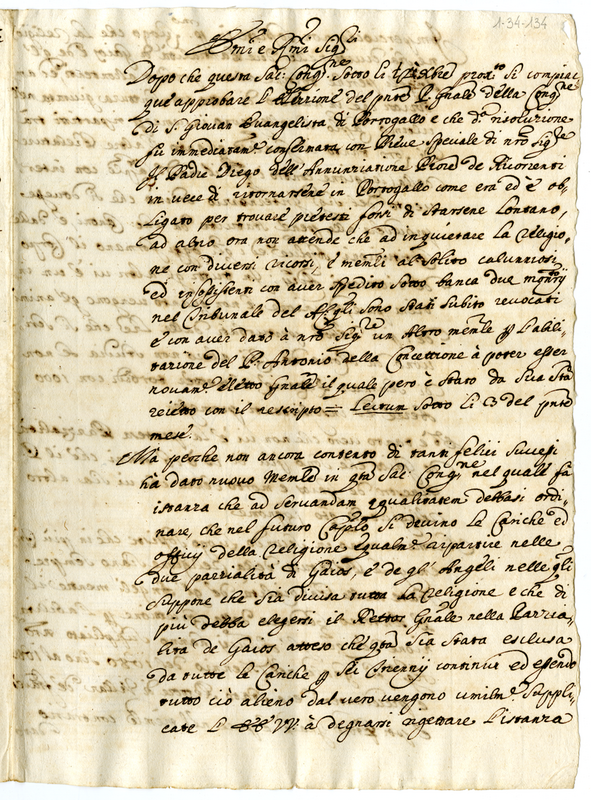 1-34-134
Emi e Rmi Sigri
Dopo che questa Sac: Congne sotto li Xbre prox.to si compiac
que approbare l'Elezione del pnte P. Gnale della Congne
di S. Giovan Evangelista di Portogallo e che da risoluzione
fù immediatamte confirmata con Breve Speciale di nro Sigre
Il Padre Diego dell'Annuntiatione Priore de
in vece di ritornarsene in Portogallo come era ed è ob,
ligato per trovare pretesti forsi di starsene lontano,
ad altro ora non attende che ad inquietare la Religio,
ne con diversi ricorsi, e memli al solito calunniosi,
ed insussistenti con aver spedito sotto banca due monitorij
nel Tribunale del che gli sono stati subito revocati
e con aver dato à nro Sigre un altro memle p l'abili,
tazione del P. Antonio della Concettione à poter esser
novamte Eletto Gnale il quale però è stato da Sua Sta
reietto con il rescripto = Lectum sotto li 3 del pnte
mese.
Ma perche non ancora contento di tanti felici successi
hà dato nuovo Memle in qta Sac: Congne nel quale fa
istanza che ad servandam equalitatem debbasi ordi,
nare, che nel futuro Caplo si devino le Cariche ed
officij della Religione equalmte ripartire nelle
due parzialità di Gaios, e de gl'Angeli nelle qli
suppone che sia divisa tutta la Religione e che di
più debba elegersi il Rettor Gnale nella Parzia,
lità de Gaios atteso che qta sia stata esclusa
da tutte le Cariche p sei Trienij continui ed essendo
tutto ciò alieno dal vero vengono umilmte suppli,
cate l'EE VV. à degnarsi rigettare l'istanza